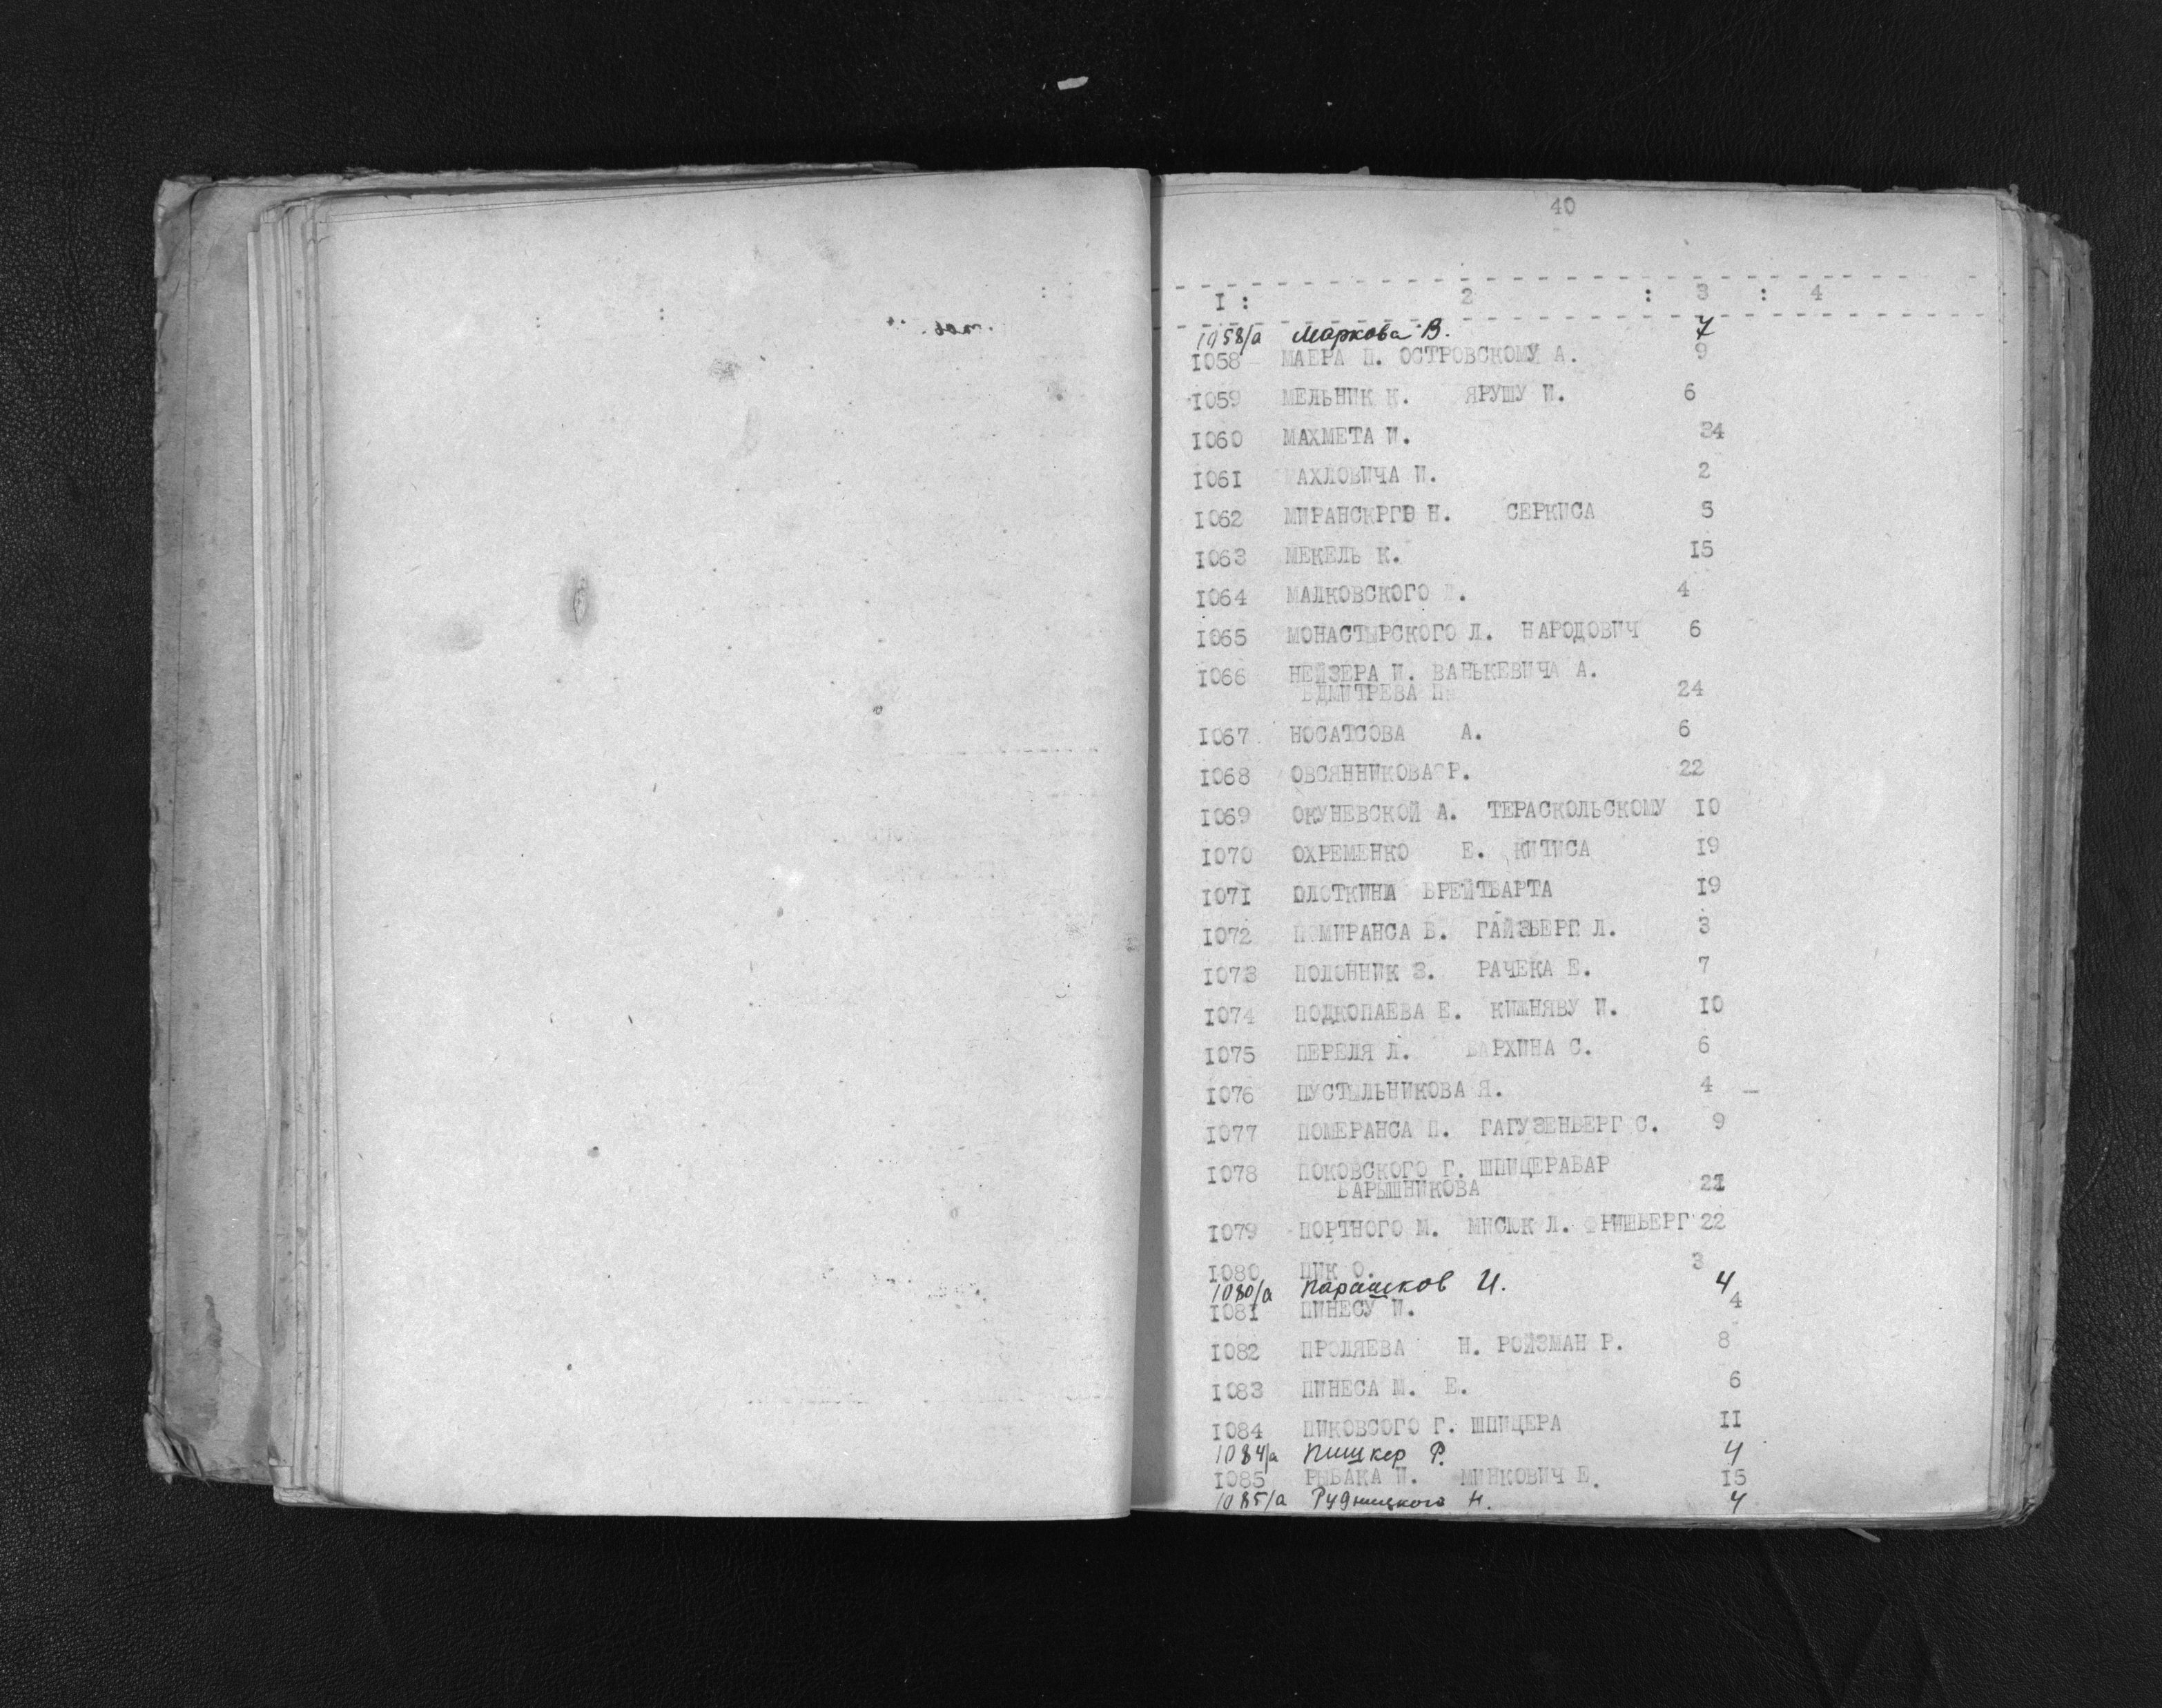 40
I : 2 : 3 : 4
1058/а Маркова В. 7
I058 МАЕРА П. ОСТРОВСКОМУ А. 9
I059 МЕЛЬНИК К. ЯРУШУ И. 6
I060 МАХМЕТА И. 34
I06I АХЛОВИЧА И. 2
I062 Н. СЕРКИСА 5
I063 МЕКЕЛЬ К. I5
I064 МАЛКОВСКОГО 4
I065 МОНАСТЫРСКОГО Л. НАРОДОВИЧ 6
I066 НЕЙЗЕРА И. ВАНЬКЕВИЧА А.
24
I067 НОСАТСОВА А. 6
I068 ОВСЯННИКОВА Р. 22
I069 ОКУНЕВСКОЙ А. ТЕРАСКОЛЬСКОМУ I0
I070 ОХРЕМЕНКО Е. КИТИСА I9
I07I БРЕЙТБАРТА I9
I072 ПОМИРАНСА Б. ГАЙЗБЕРГ Л. 3
I073 ПОЛОННИК З. РАЧЕКА Е. 7
I074 ПОДКОПАЕВА Е. КИШНЯВУ И. I0
I075 ПЕРЕЛЯ Л. БАРХИНА С. 6
I076 ПУСТЫЛЬНИКОВА Я. 4 —
I077 ПОМЕРАНСА П. ГАГУЗЕНБЕРГ С. 9
I078 ПОКОВСКОГО Г. ШПИЦЕРАБАР
БАРЫШНИКОВА
I079 ПОРТНОГО М. МИСЮК Л. ФРИШБЕРГ 22
I080 ПИК О. 3
1080/а Парашков И. 4
I08I ПИНЕСУ И. 4
I082 ПРОЛЯЕВА Н. РОЙЗМАН Р. 8
I083 ПИНЕСА М. Е. 6
I084 ПИКОВСОГО Г. ШПИЦЕРА II
1084/а Пишкер Р. 4
I085 РЫБАКА И. МИНКОВИЧ Е. I5
1085/а Рудницкого Н. 4